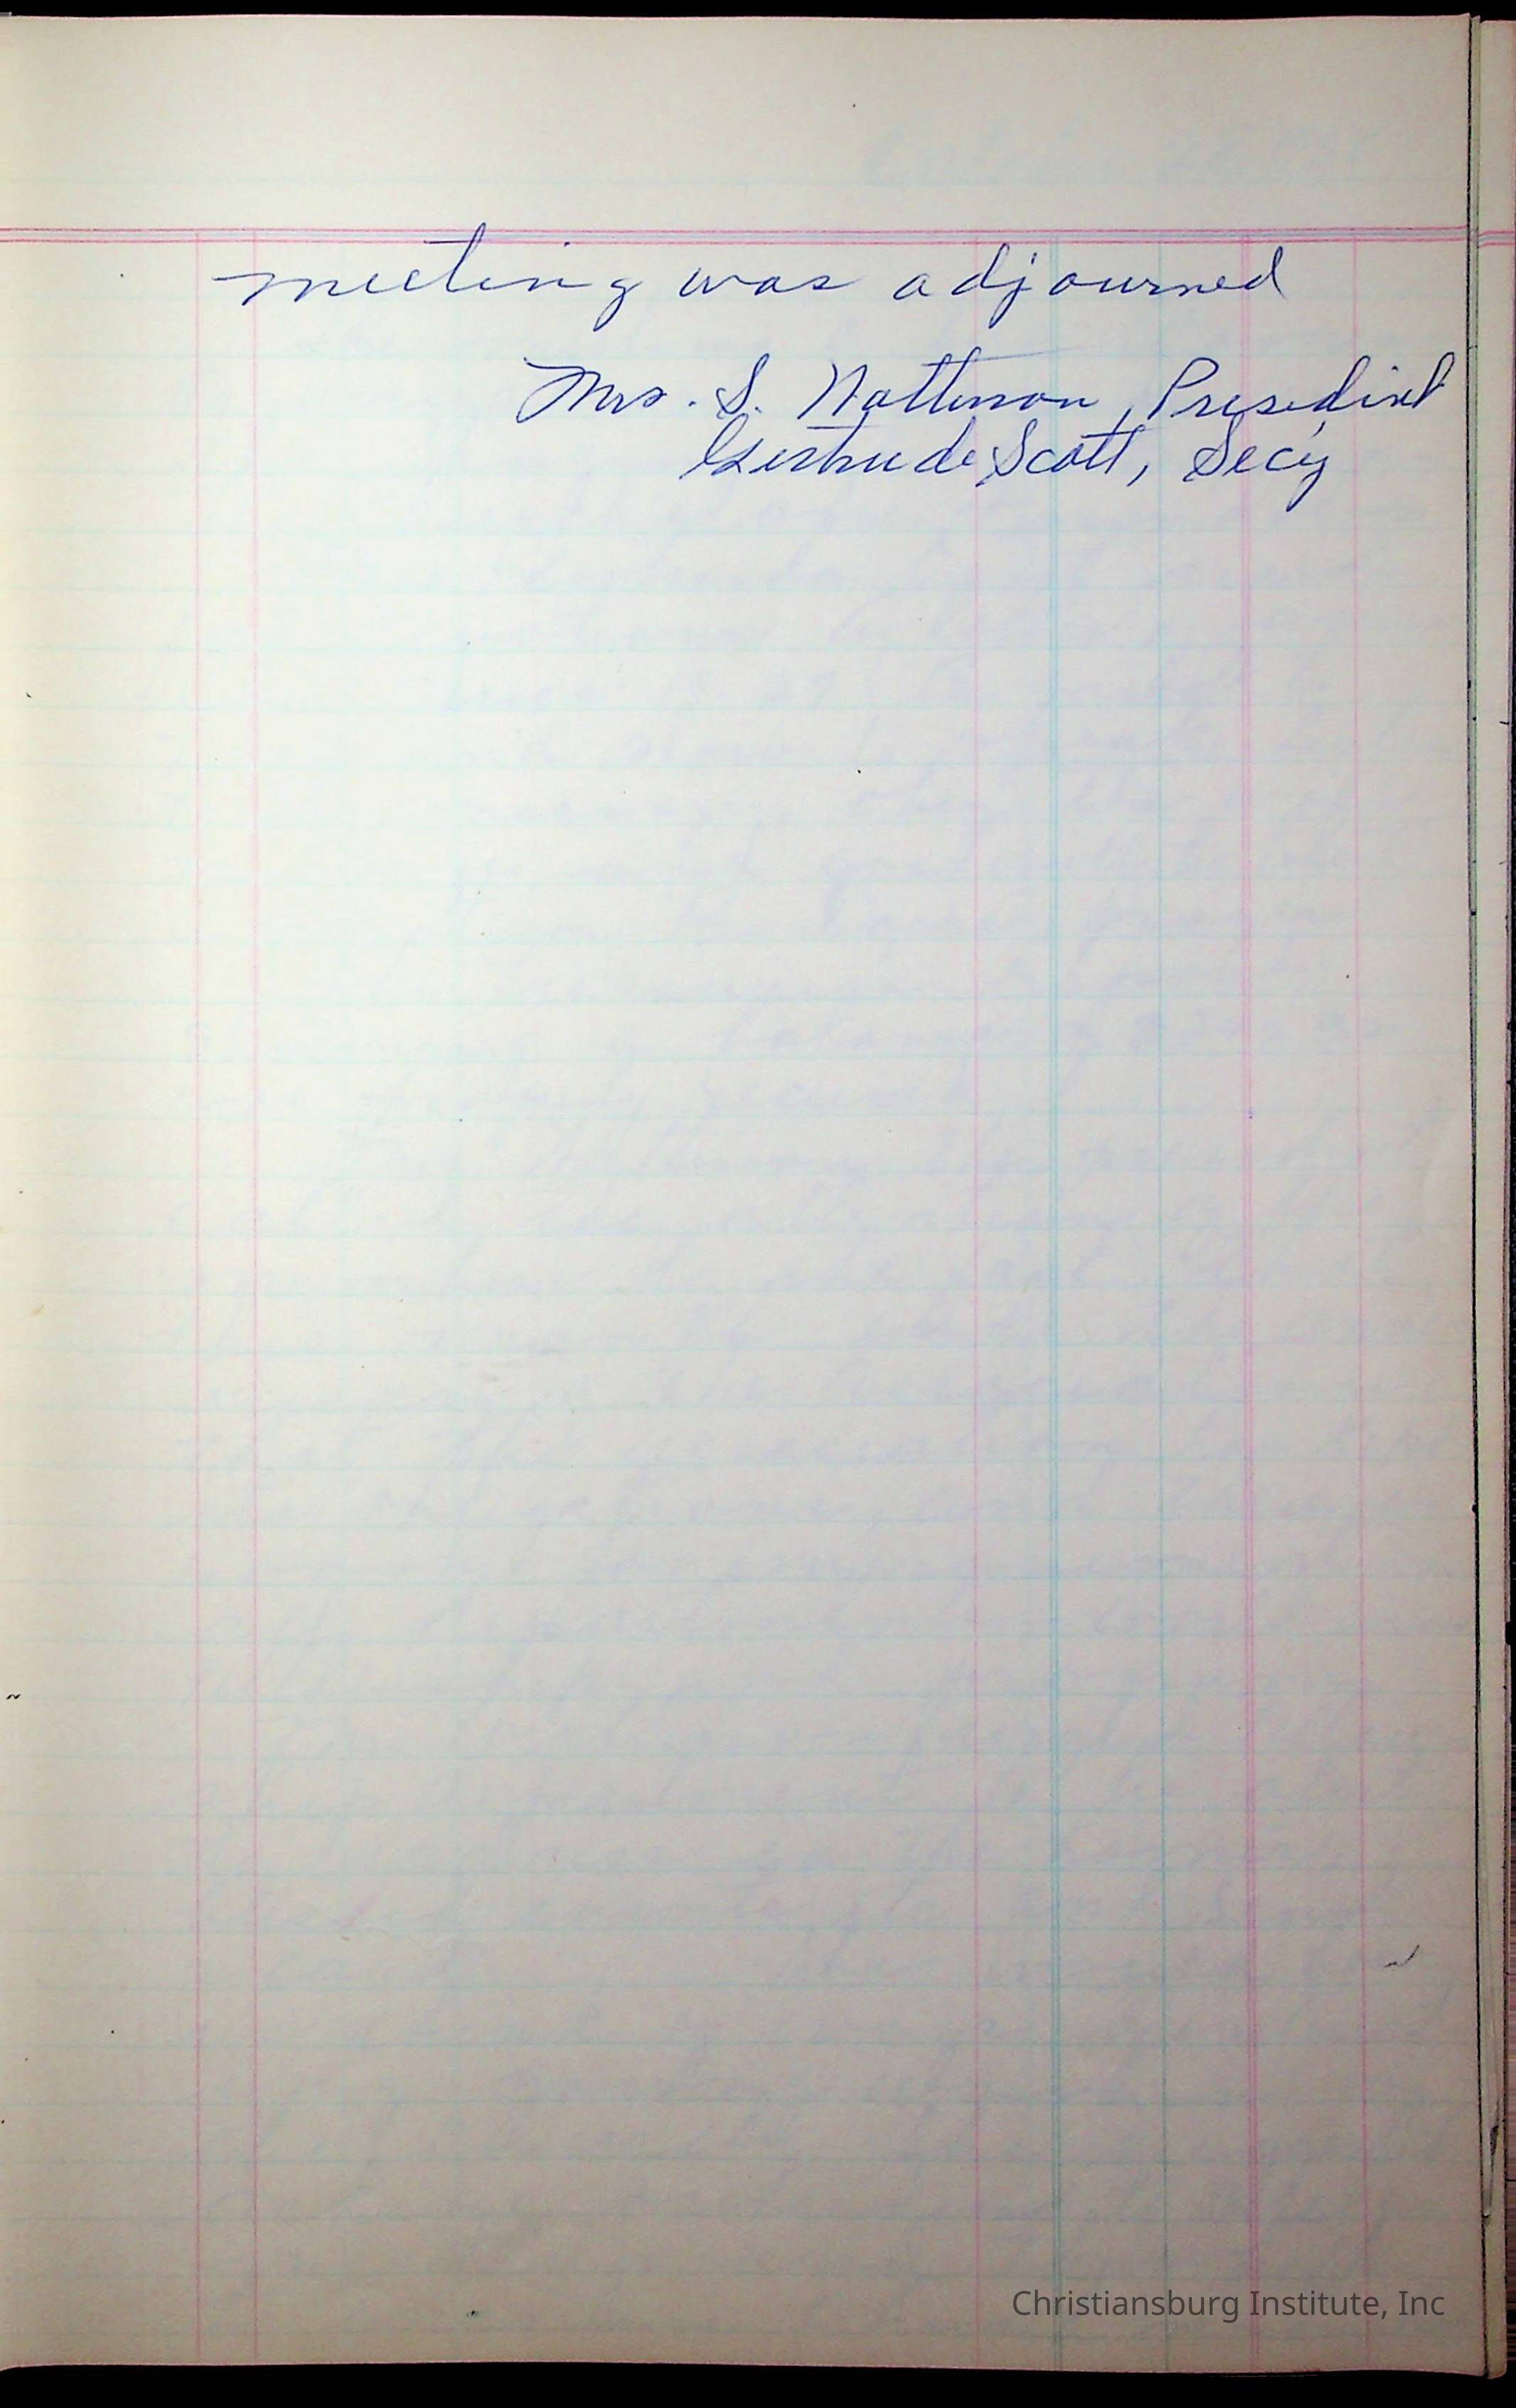 meeting was adjourned
Mrs. S. Patterson, President
Gertrude Scott, Secy
Christiansburg Institute, Inc